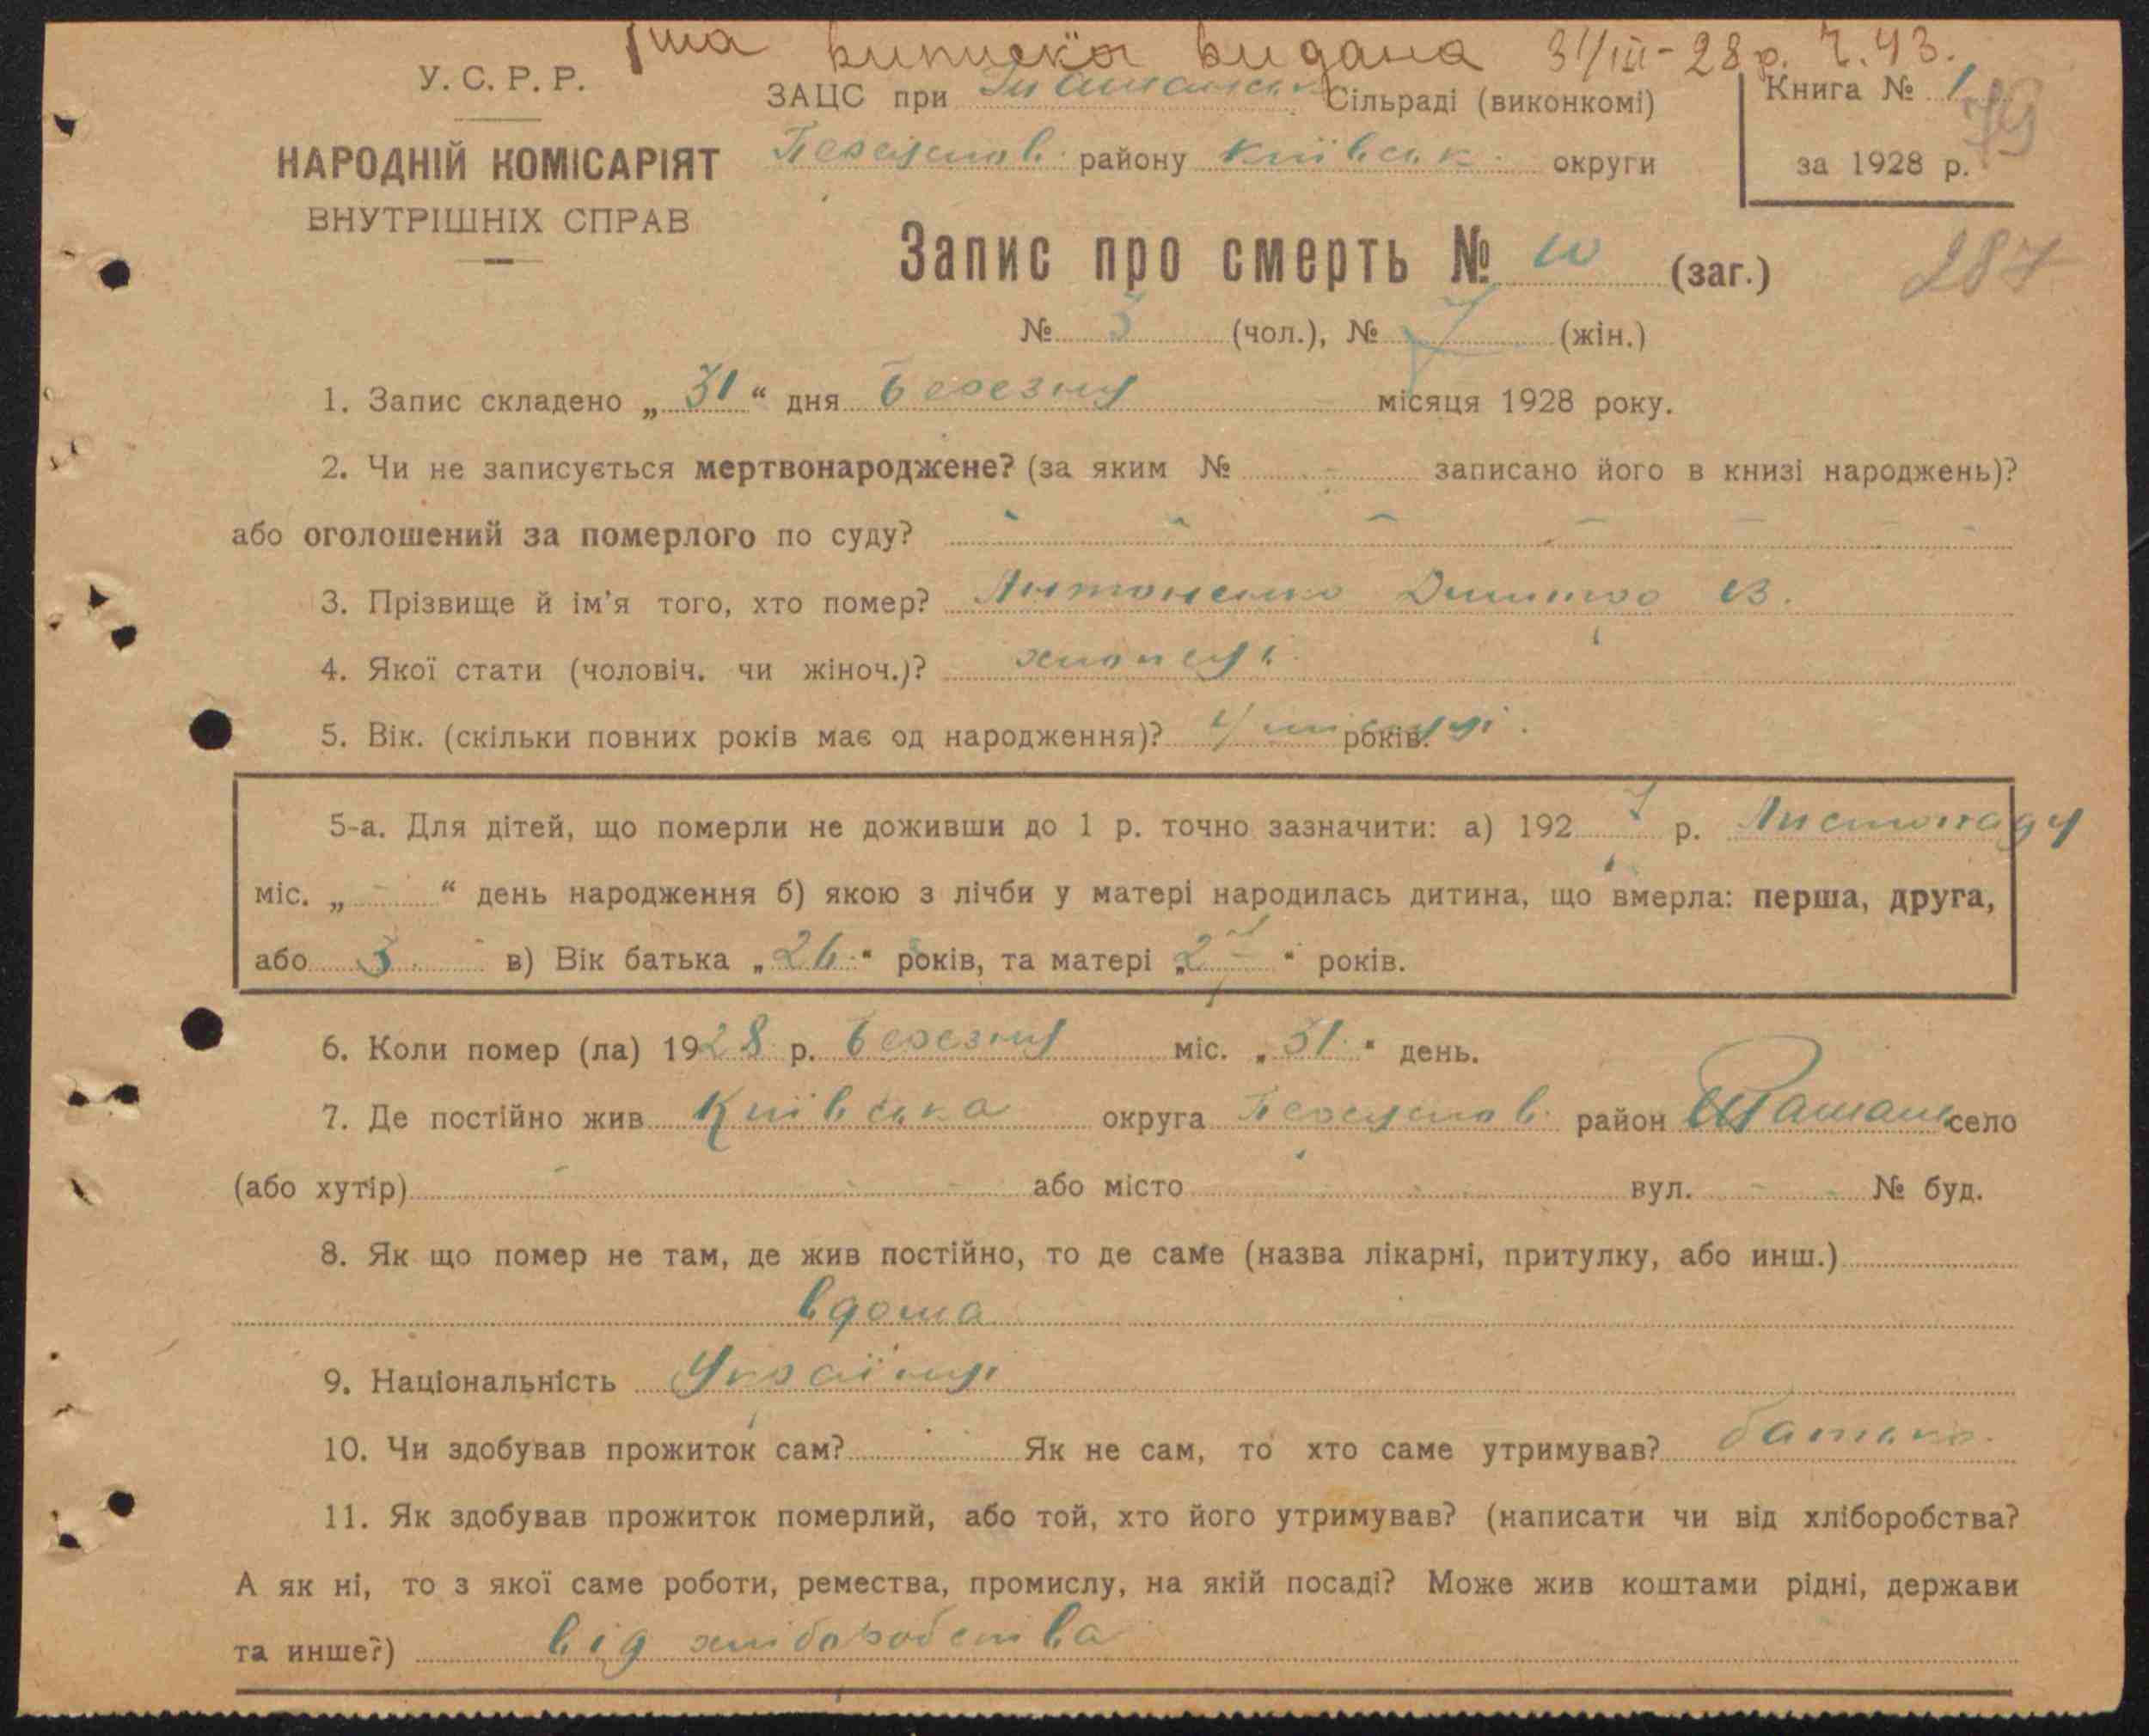 1ша виписка видана 31/III-28 р. Ч. 43.
У. С. Р. Р.
НАРОДНІЙ КОМІСАРІЯТ
ВНУТРІШНІХ СПРАВ
ЗАЦС при Ташанськ Сільраді (виконкомі)
Переяслав. району Київськ. округи
Книга № 1
79
за 1928 р.
Запис про смерть № 10 (заг.)
287
№ 3 (чол.), № 7 (жін.)
1. Запис складено „ 31 “ дня Березня місяця 1928 року.
2. Чи не записується мертвонароджене? (за яким № - записано його в книзі народжень)?
або оголошений за померлого по суду? - - - - - -
3. Прізвище й ім'я того, хто помер? Антоненко Дмитро В.
4. Якої стати (чоловіч. чи жіноч.)?
5. Вік. (скільки повних років має од народження)? 4 місяці. років.
5-а. Для дітей, що померли не доживши до 1 р. точно зазначити: а) 192 7 р. Листопаду
міс. „ - “ день народження б) якою з лічби у матері народилась дитина, що вмерла: перша, друга,
або 3. в) Вік батька „ 26 “ років, та матері „ 27 “ років.
6. Коли помер (ла) 1928 р. Березня міс. „ 31. “ день.
7. Де постійно жив Київська округа Переяслав. район Ташань село
(або хутір) - або місто - вул. - № буд.
8. Як що помер не там, де жив постійно, то де саме (назва лікарні, притулку, або инш.)
вдома
9. Національність Українці
10. Чи здобував прожиток сам? - Як не сам, то хто саме утримував? батько.
11. Як здобував прожиток померлий, або той, хто його утримував? (написати чи від хліборобства?
А як ні, то з якої саме роботи, ремества, промислу, на якій посаді? Може жив коштами рідні, держави
та инше?) від хліборобства